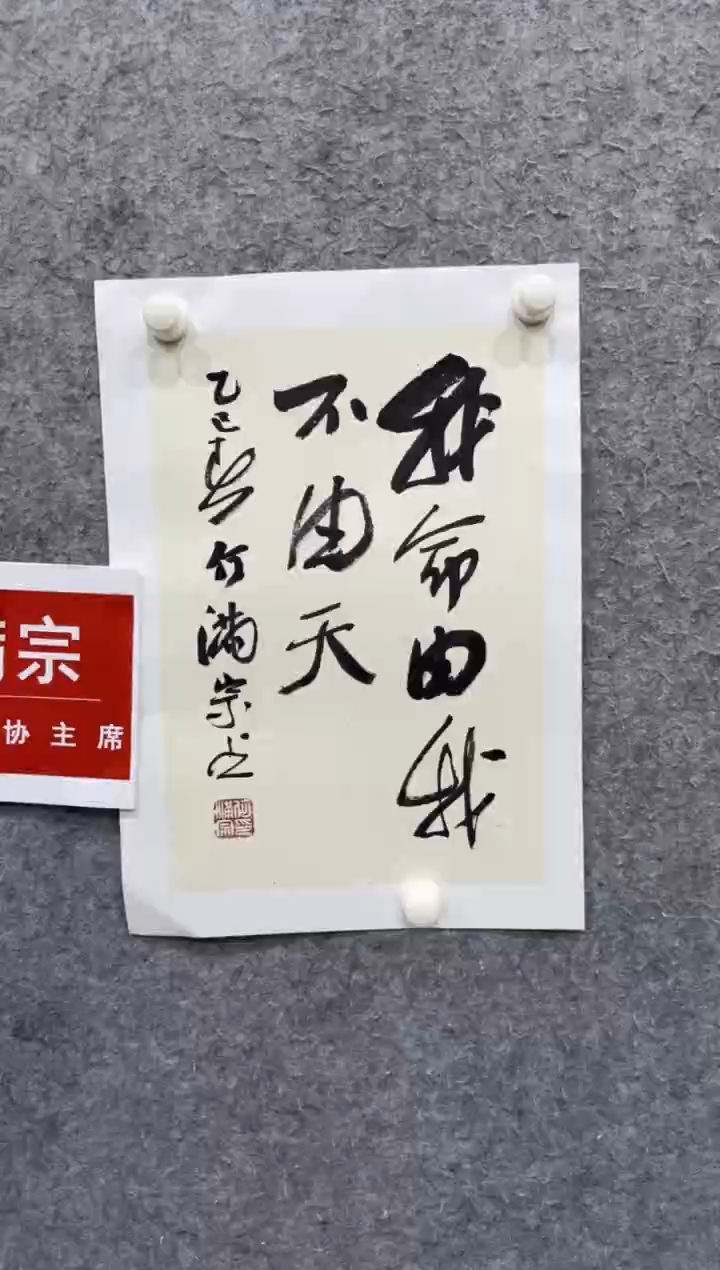 我命由我
不由天
乙巳春 仃满宗书
宗
协主席